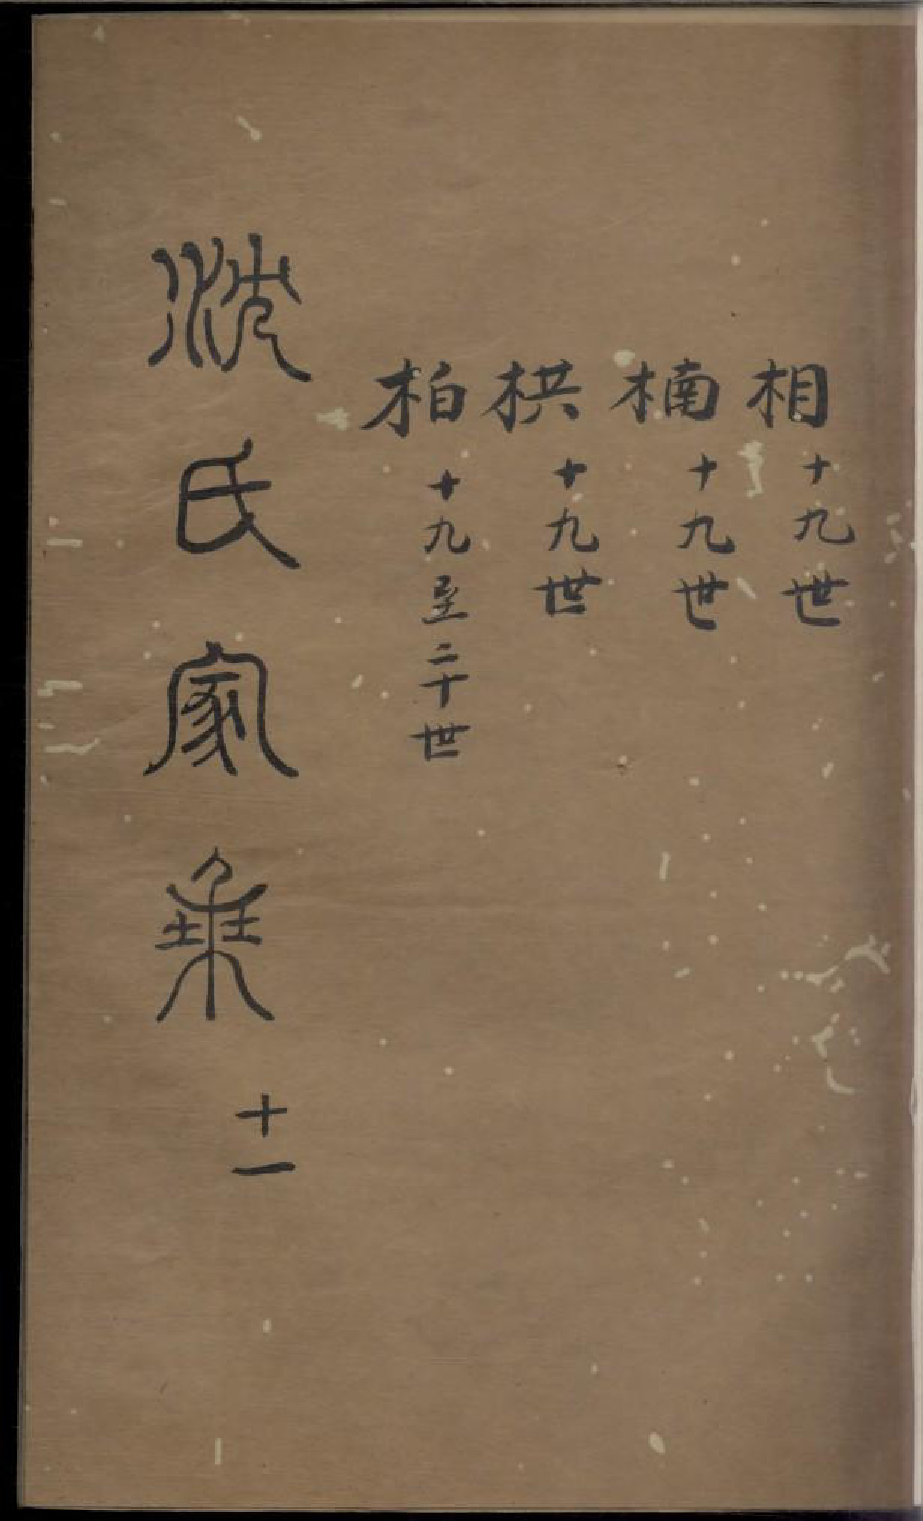 相十九世
楠十九世
栱十九世
柏十九至二十世
沈氏家乘
十一